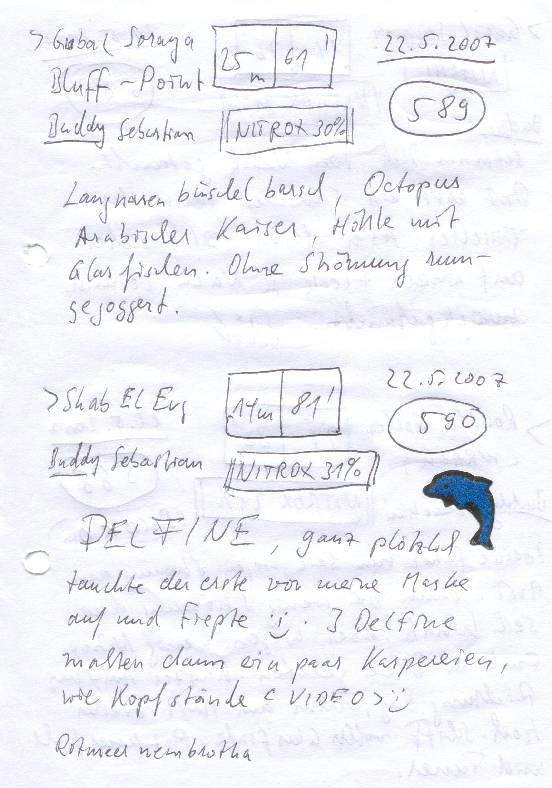 > Gubal Soraya
25m 61'
22.5.2007
Bluff-Point
589
Buddy Sebastian
NITROX 30%
Langnasenbüschelbarsch, Octopus
Arabischer Kaiser, Höhle mit
Glasfischen. Ohne Strömung rum-
gejoggert.
> Shab El Erg
14m 81'
22.5.2007
590
Buddy Sebastian
NITROX 31%
DELFINE, ganz plötzlich
tauchte der erste vor meine Maske
auf und Fiepte :). 3 Delfine
machten dann ein paar Kaspereien,
wie Kopfstände <VIDEO> :)
Rotmeer nembrotha